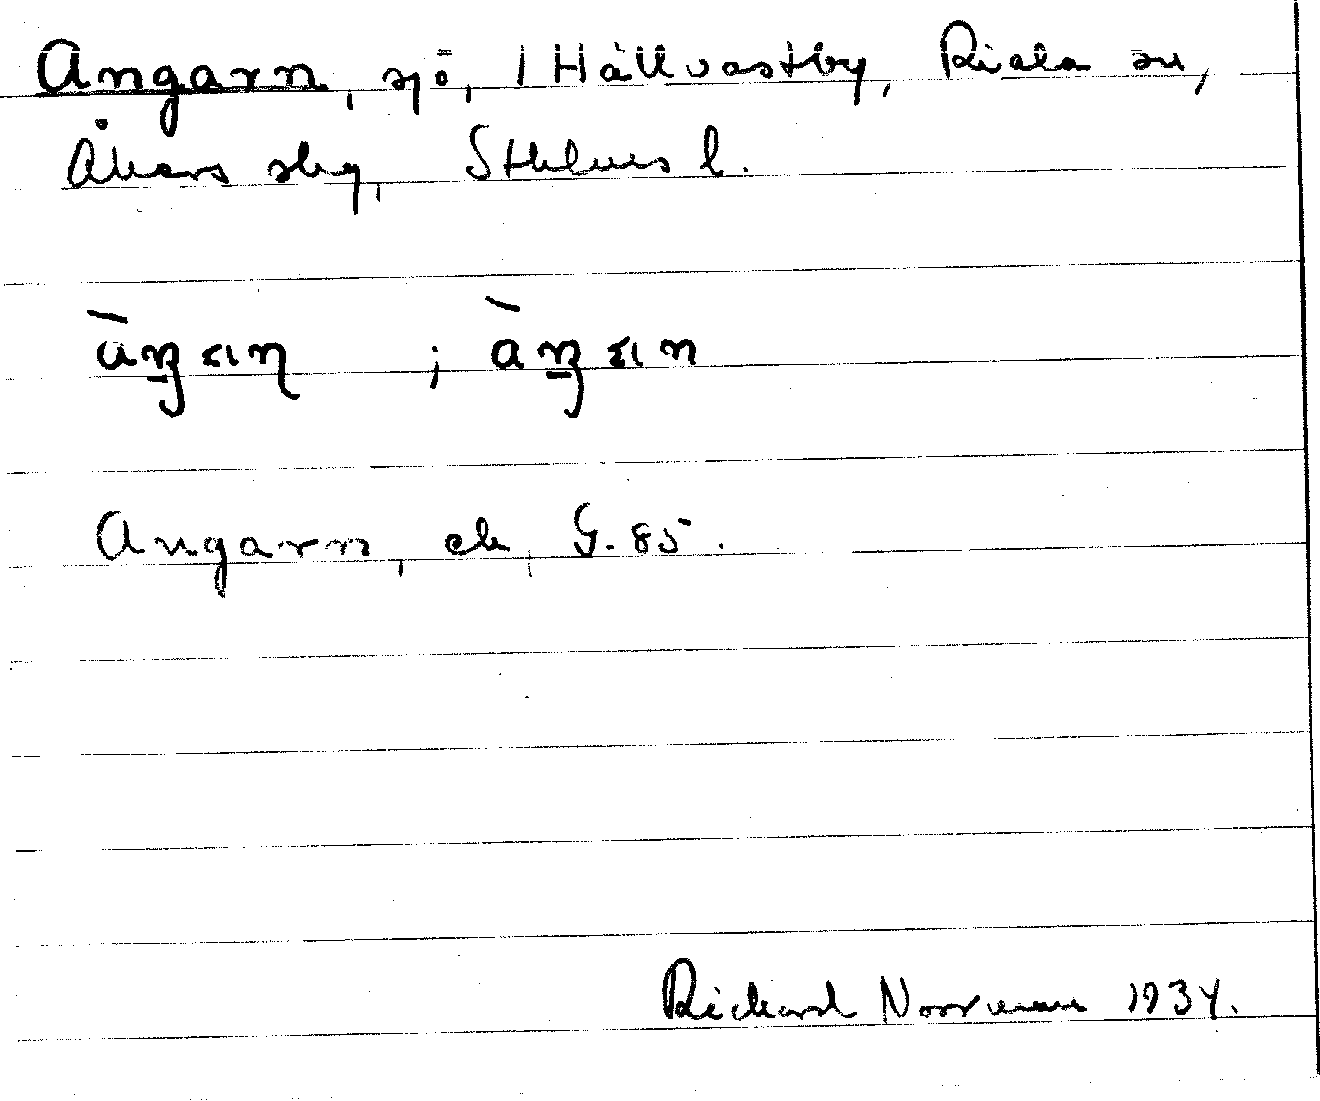 Angarn, sjö, 1 Hällvastby, Riala sn,
Åkers skg, Sthlms l.
Angarn, ek, G. 85.
Richard Norrman 1934.